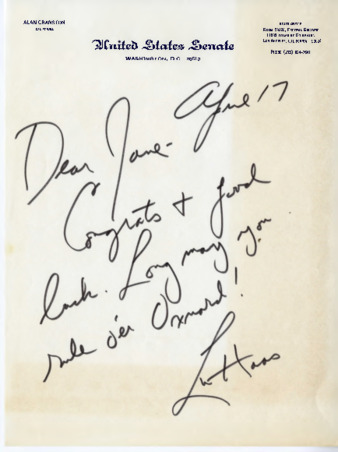 ALAN CRANSTON
United States Senate
WASHINGTON, D.C.
April 17
Dear Jane-
Congrats + good
luck. Long may you
rule o'er Oxnard!
Lu Haas